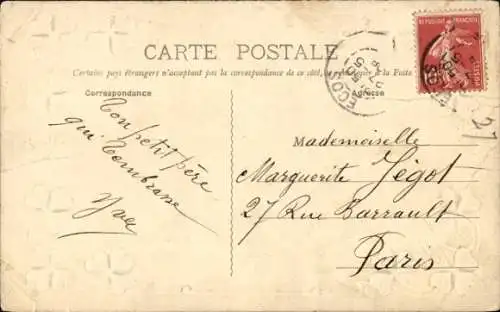 CARTE POSTALE
Certains pays étrangers n'acceptant pas la correspondance de ce côté, se renseigner à la Poste
Correspondance
Adresse
Ton petit père
qui t'embrasse
Yves
Mademoiselle
Marguerite Jégot
27 Rue Barrault
Paris
REPUBLIQUE FRANÇAISE